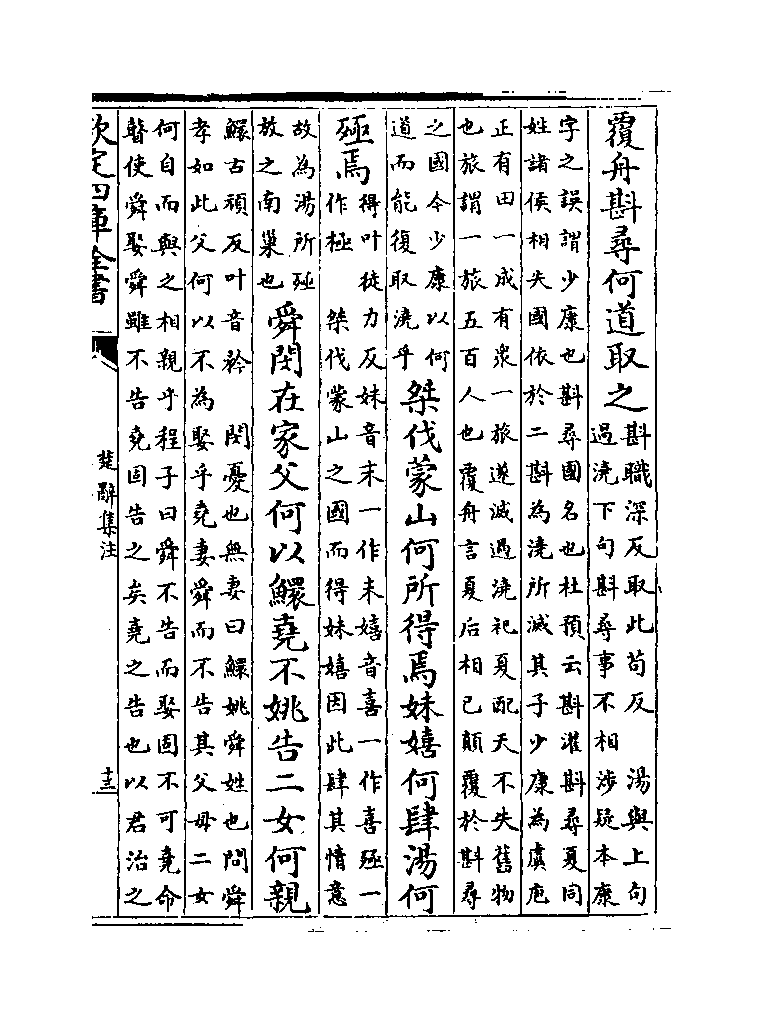 覆舟斟尋何道取之
斟職深反取此苟反　湯與上句
過澆下句斟尋事不相涉疑本康
字之誤謂少康也斟尋國名也杜預云斟灌斟尋夏同
姓諸侯相失國依於二斟為澆所滅其子少康為虞庖
正有田一成有衆一旅遂滅過澆祀夏配天不失舊物
也旅謂一旅五百人也覆舟言夏后相已顛覆於斟尋
之國今少康以何
道而能復取澆乎
桀伐蒙山何所得焉妹嬉何肆湯何
殛焉
得叶徒力反妹音末一作末嬉音喜一作喜殛一
作極　桀伐蒙山之國而得妹嬉因此肆其情意
故為湯所殛
放之南巢也
舜閔在家父何以鱞堯不姚告二女何親
鱞古頑反叶音矜　閔憂也無妻曰鱞姚舜姓也問舜
孝如此父何以不為娶乎堯妻舜而不告其父母二女
何自而與之相親乎程子曰舜不告而娶固不可堯命
瞽使舜娶舜雖不告堯固告之矣堯之告也以君治之
欽定四庫全書
楚辭集注
十三